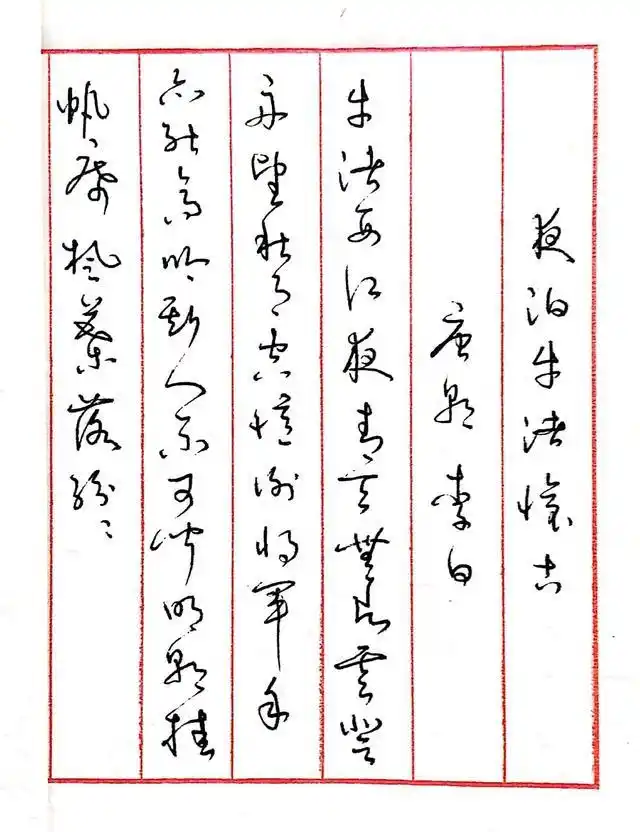 夜泊牛渚懷古
唐朝 李白
牛渚西江夜青天無片雲登
舟望秋月空憶謝將軍余
亦能高吟斯人不可聞明朝挂
帆席楓葉落紛〻